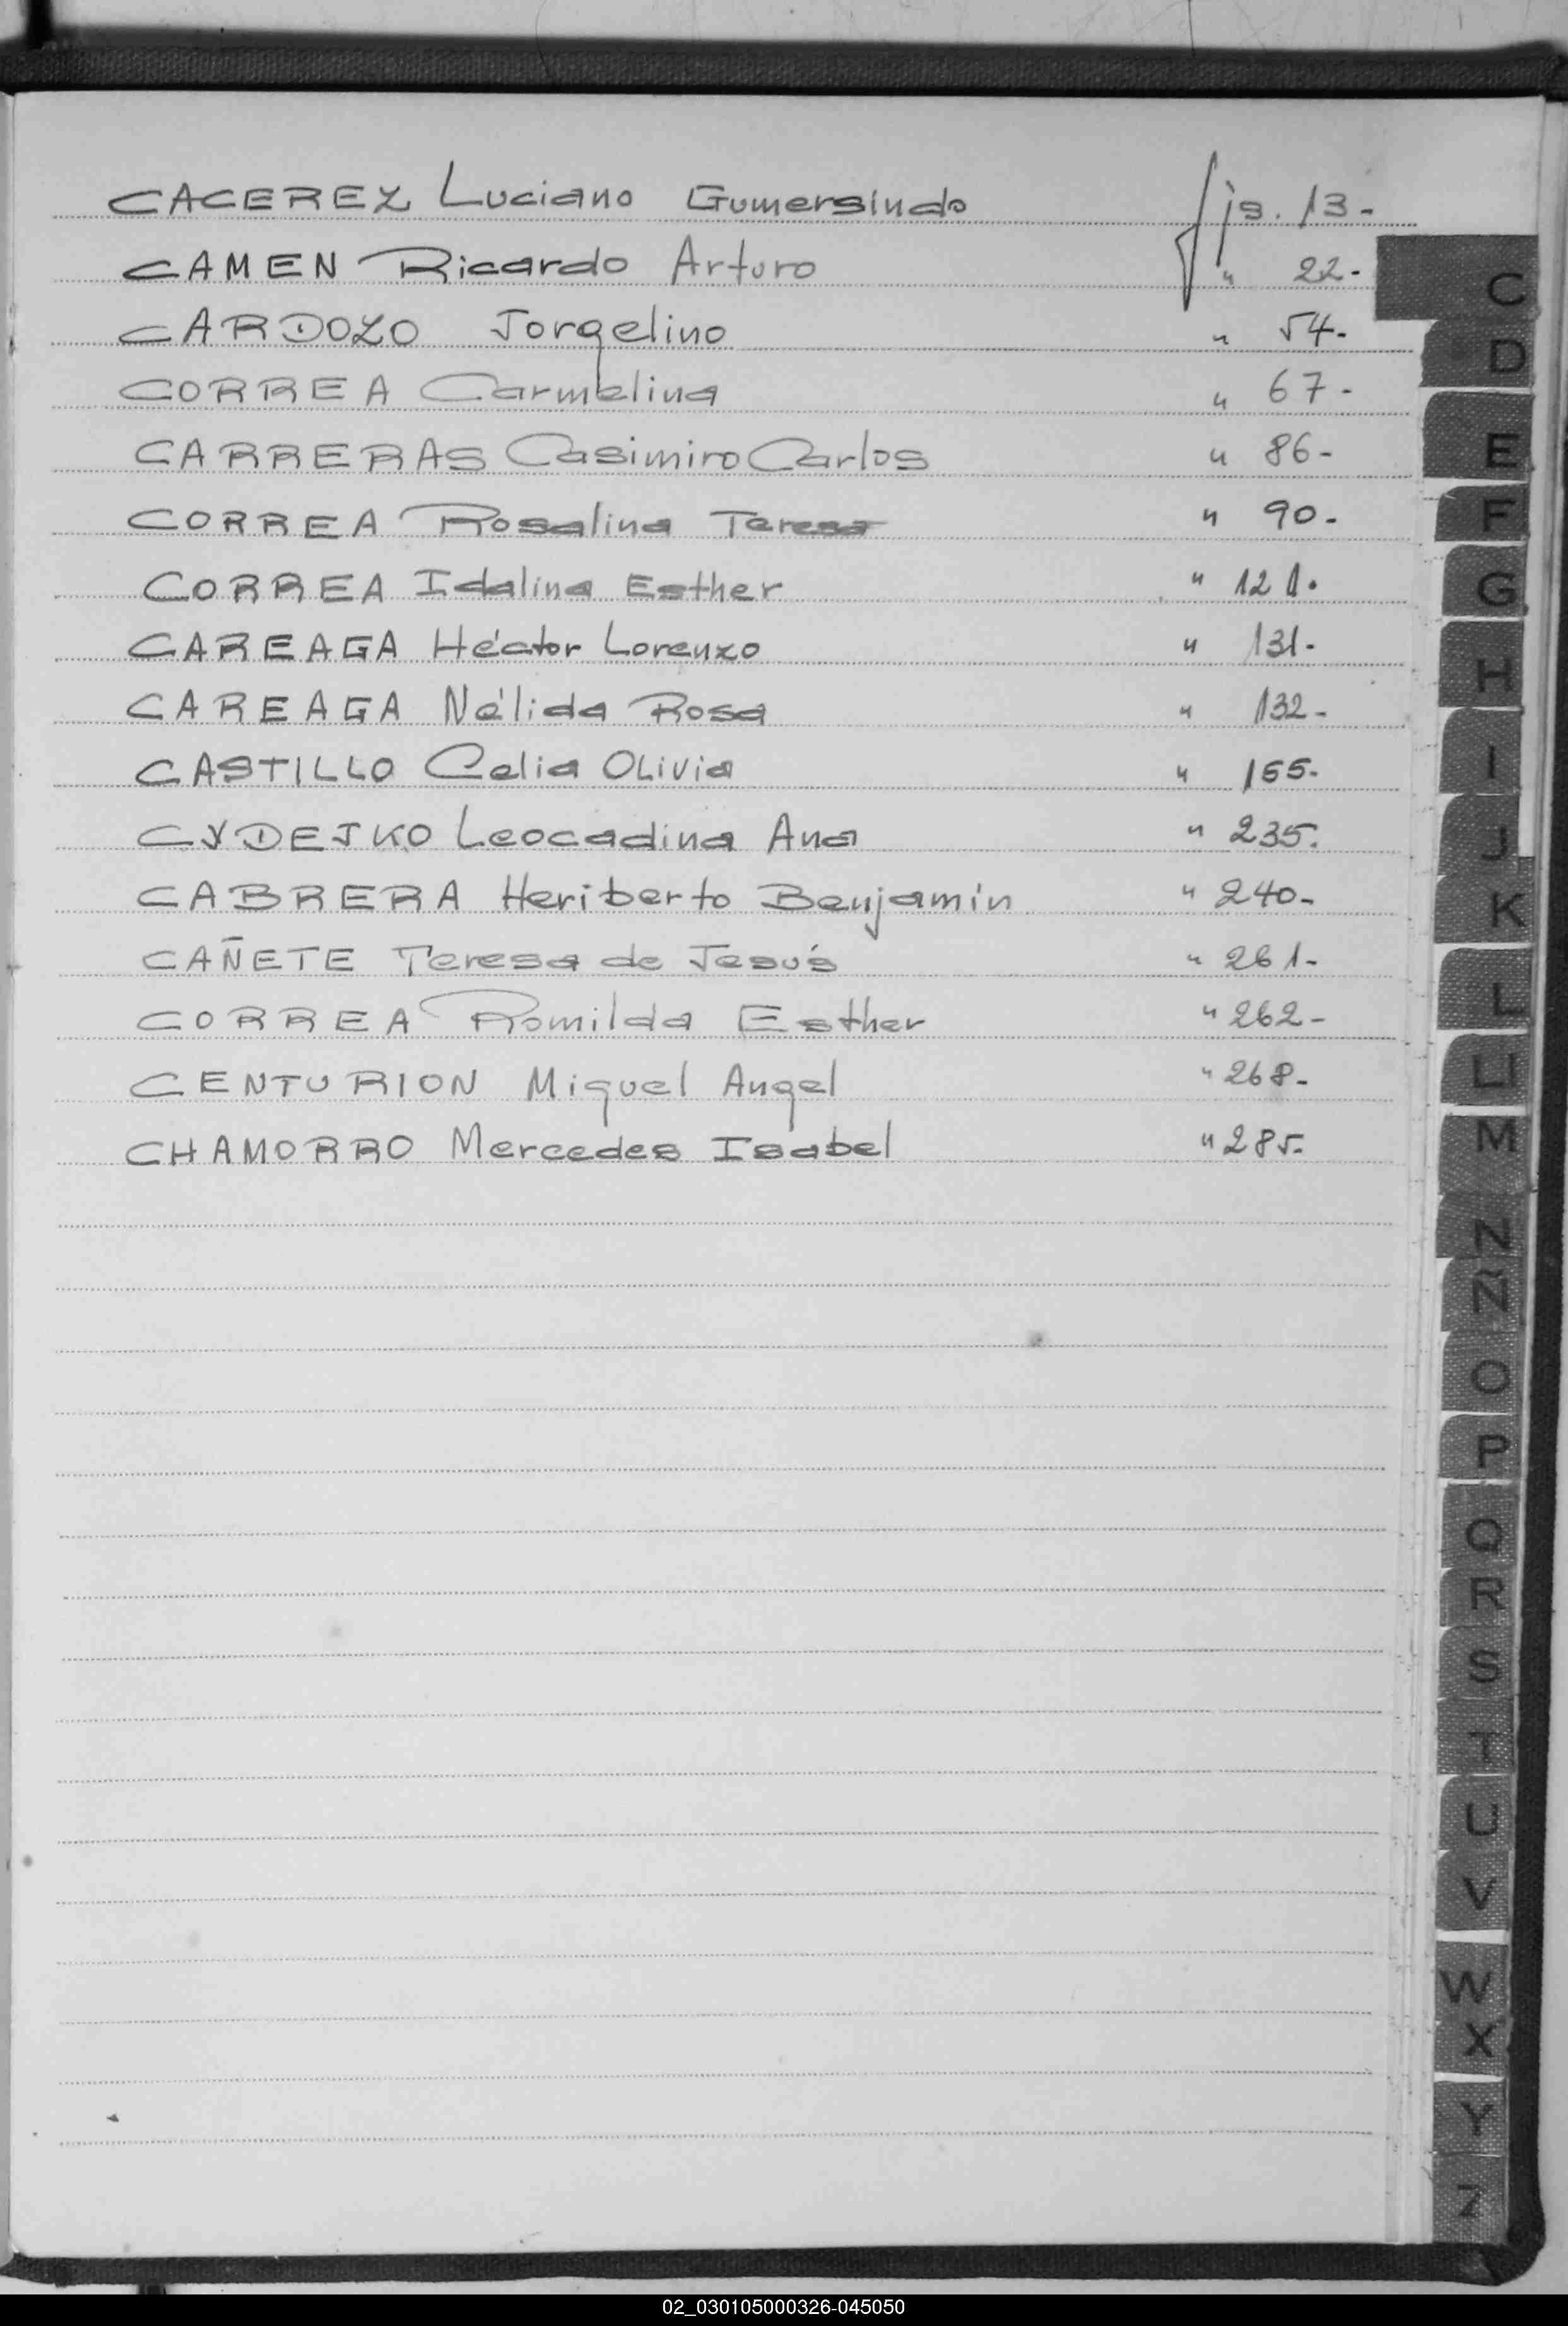 CACEREZ Luciano Gumersindo fjs. 13-
CAMEN Ricardo Arturo " 22-
CARDOZO Jorgelino " 54-
CORREA Carmelina " 67-
CARRERAS Casimiro Carlos " 86-
CORREA Rosalina Teresa " 90-
CORREA Idalina Esther " 121.
CAREAGA Héctor Lorenzo " 131-
CAREAGA Nélida Rosa " 132-
CASTILLO Celia OLivia " 155-
CYDEJKO Leocadina Ana " 235.
CABRERA Heriberto Benjamín " 240-
CAÑETE Teresa de Jesús " 261-
CORREA Romilda Esther " 262-
CENTURION Miguel Angel " 268-
CHAMORRO Mercedes Isabel " 285-
C
D
E
F
G
H
I
J
K
L
Ll
M
N
Ñ
O
P
Q
R
S
T
U
V
W
X
Y
Z
02_030105000326-045050